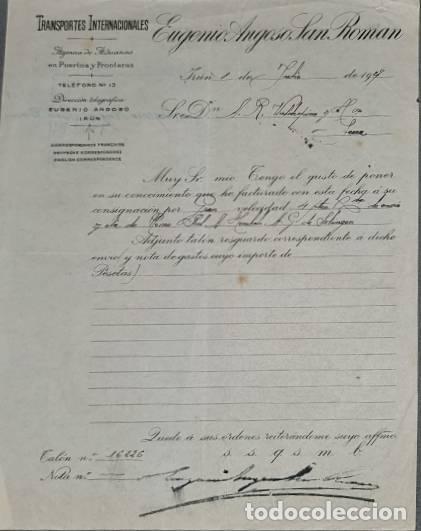 TRANSPORTES INTERNACIONALES
Eugenio Angoso San Román
Agencia de Aduanas
en Puertos y Fronteras
TELÉFONO Nº 13
Dirección telegráfica
EUGENIO ANGOSO
IRÚN
CORRESPONDANCE FRANÇAISE
DEUTSCHE CORRESPONDENZ
ENGLISH CORRESPONDENCE
Irún 1 de Julio de 19
Sr. Dn. S. R.
Muy Sr. mío: Tengo el gusto de poner
en su conocimiento que he facturado con esta fecha á su
consignación por Gran velocidad 4
de Solingen
Adjunto talón resguardo correspondiente a dicho
envío y nota de gastos cuyo importe de
Pesetas)
Quedo á sus órdenes reiterándome suyo affmo.
s. s. q. s. m. b.
Talón nº 16226
Nota nº
todocoleccion